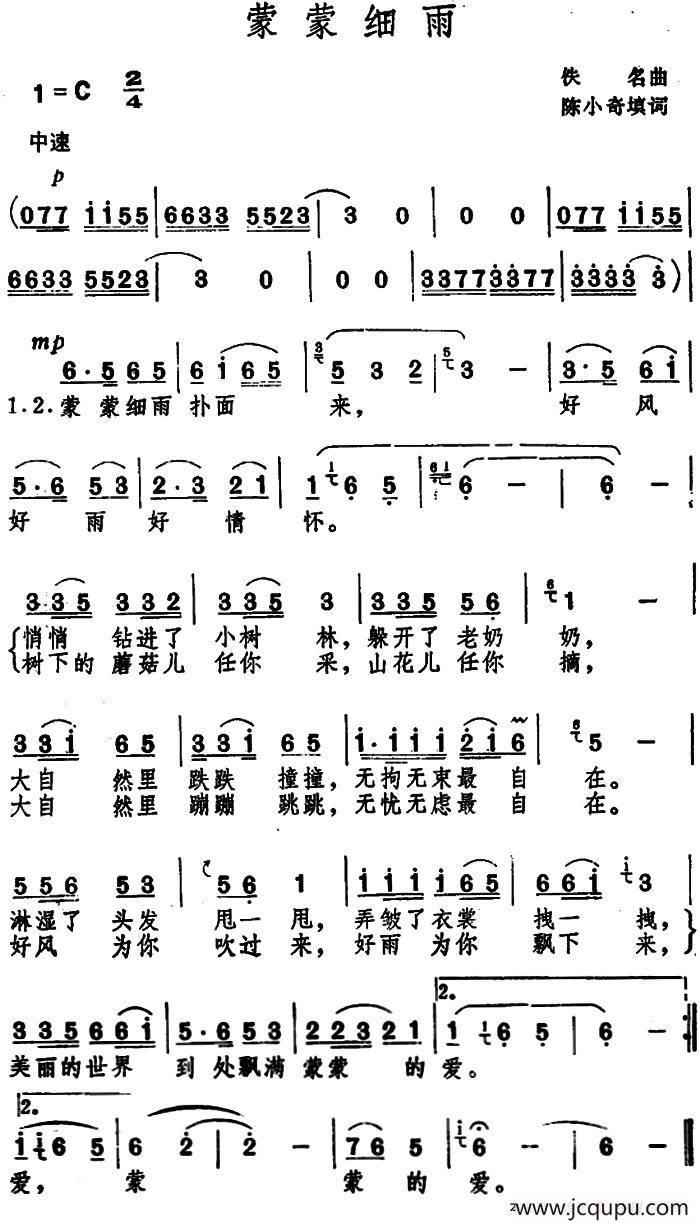 蒙蒙细雨
1=C 2/4
佚 名曲
陈小奇填词
中速
p
(077 i̇i̇55 | 6633 5523 | 3 0 | 0 0 | 077 i̇i̇55 |
6633 5523 | 3 0 | 0 0 | 3377 3̇3̇77 | 3̇3̇3̇3̇ 3̇) |
mp
6·5 65 | 6 i̇ 65 | 3 5 3 2 | 5 3 - | 3·5 6i̇ |
1.2.蒙 蒙细雨 扑面 来, 好 风
5·6 53 | 2·3 21 | 1 1 6̣ 5̣ | 6 1 6̣ - | 6̣ - |
好 雨 好 情 怀。
335 332 | 335 3 | 335 56̣ | 6 1 - |
悄悄 钻进了 小树 林,躲开了 老奶 奶,
树下的 蘑菇儿 任你 采,山花儿 任你 摘,
33i̇ 65 | 33i̇ 65 | i̇·i̇i̇i̇ 2̇i̇6 | 6 5 - |
大自 然里 跌跌 撞撞,无拘无束最 自 在。
大自 然里 蹦蹦 跳跳,无忧无虑最 自 在。
556 53 | 56̣ 1 | i̇i̇i̇ i̇65 | 66i̇ i̇ 3 |
淋湿了 头发 甩一 甩, 弄皱了 衣裳 拽一 拽,
好风 为你 吹过 来,好雨 为你 飘下 来,
2.
335 66i̇ | 5·6 53 | 22321 | 1 1 6̣ 5̣ | 6̣ - :||
美丽的世界 到 处飘满 蒙蒙 的 爱。
2.
i̇ i̇ 65 | 6 2̇ | 2̇ - | 765 5 | i̇ 6 - | - - ||
爱, 蒙 蒙 的 爱。
www.jcqupu.com